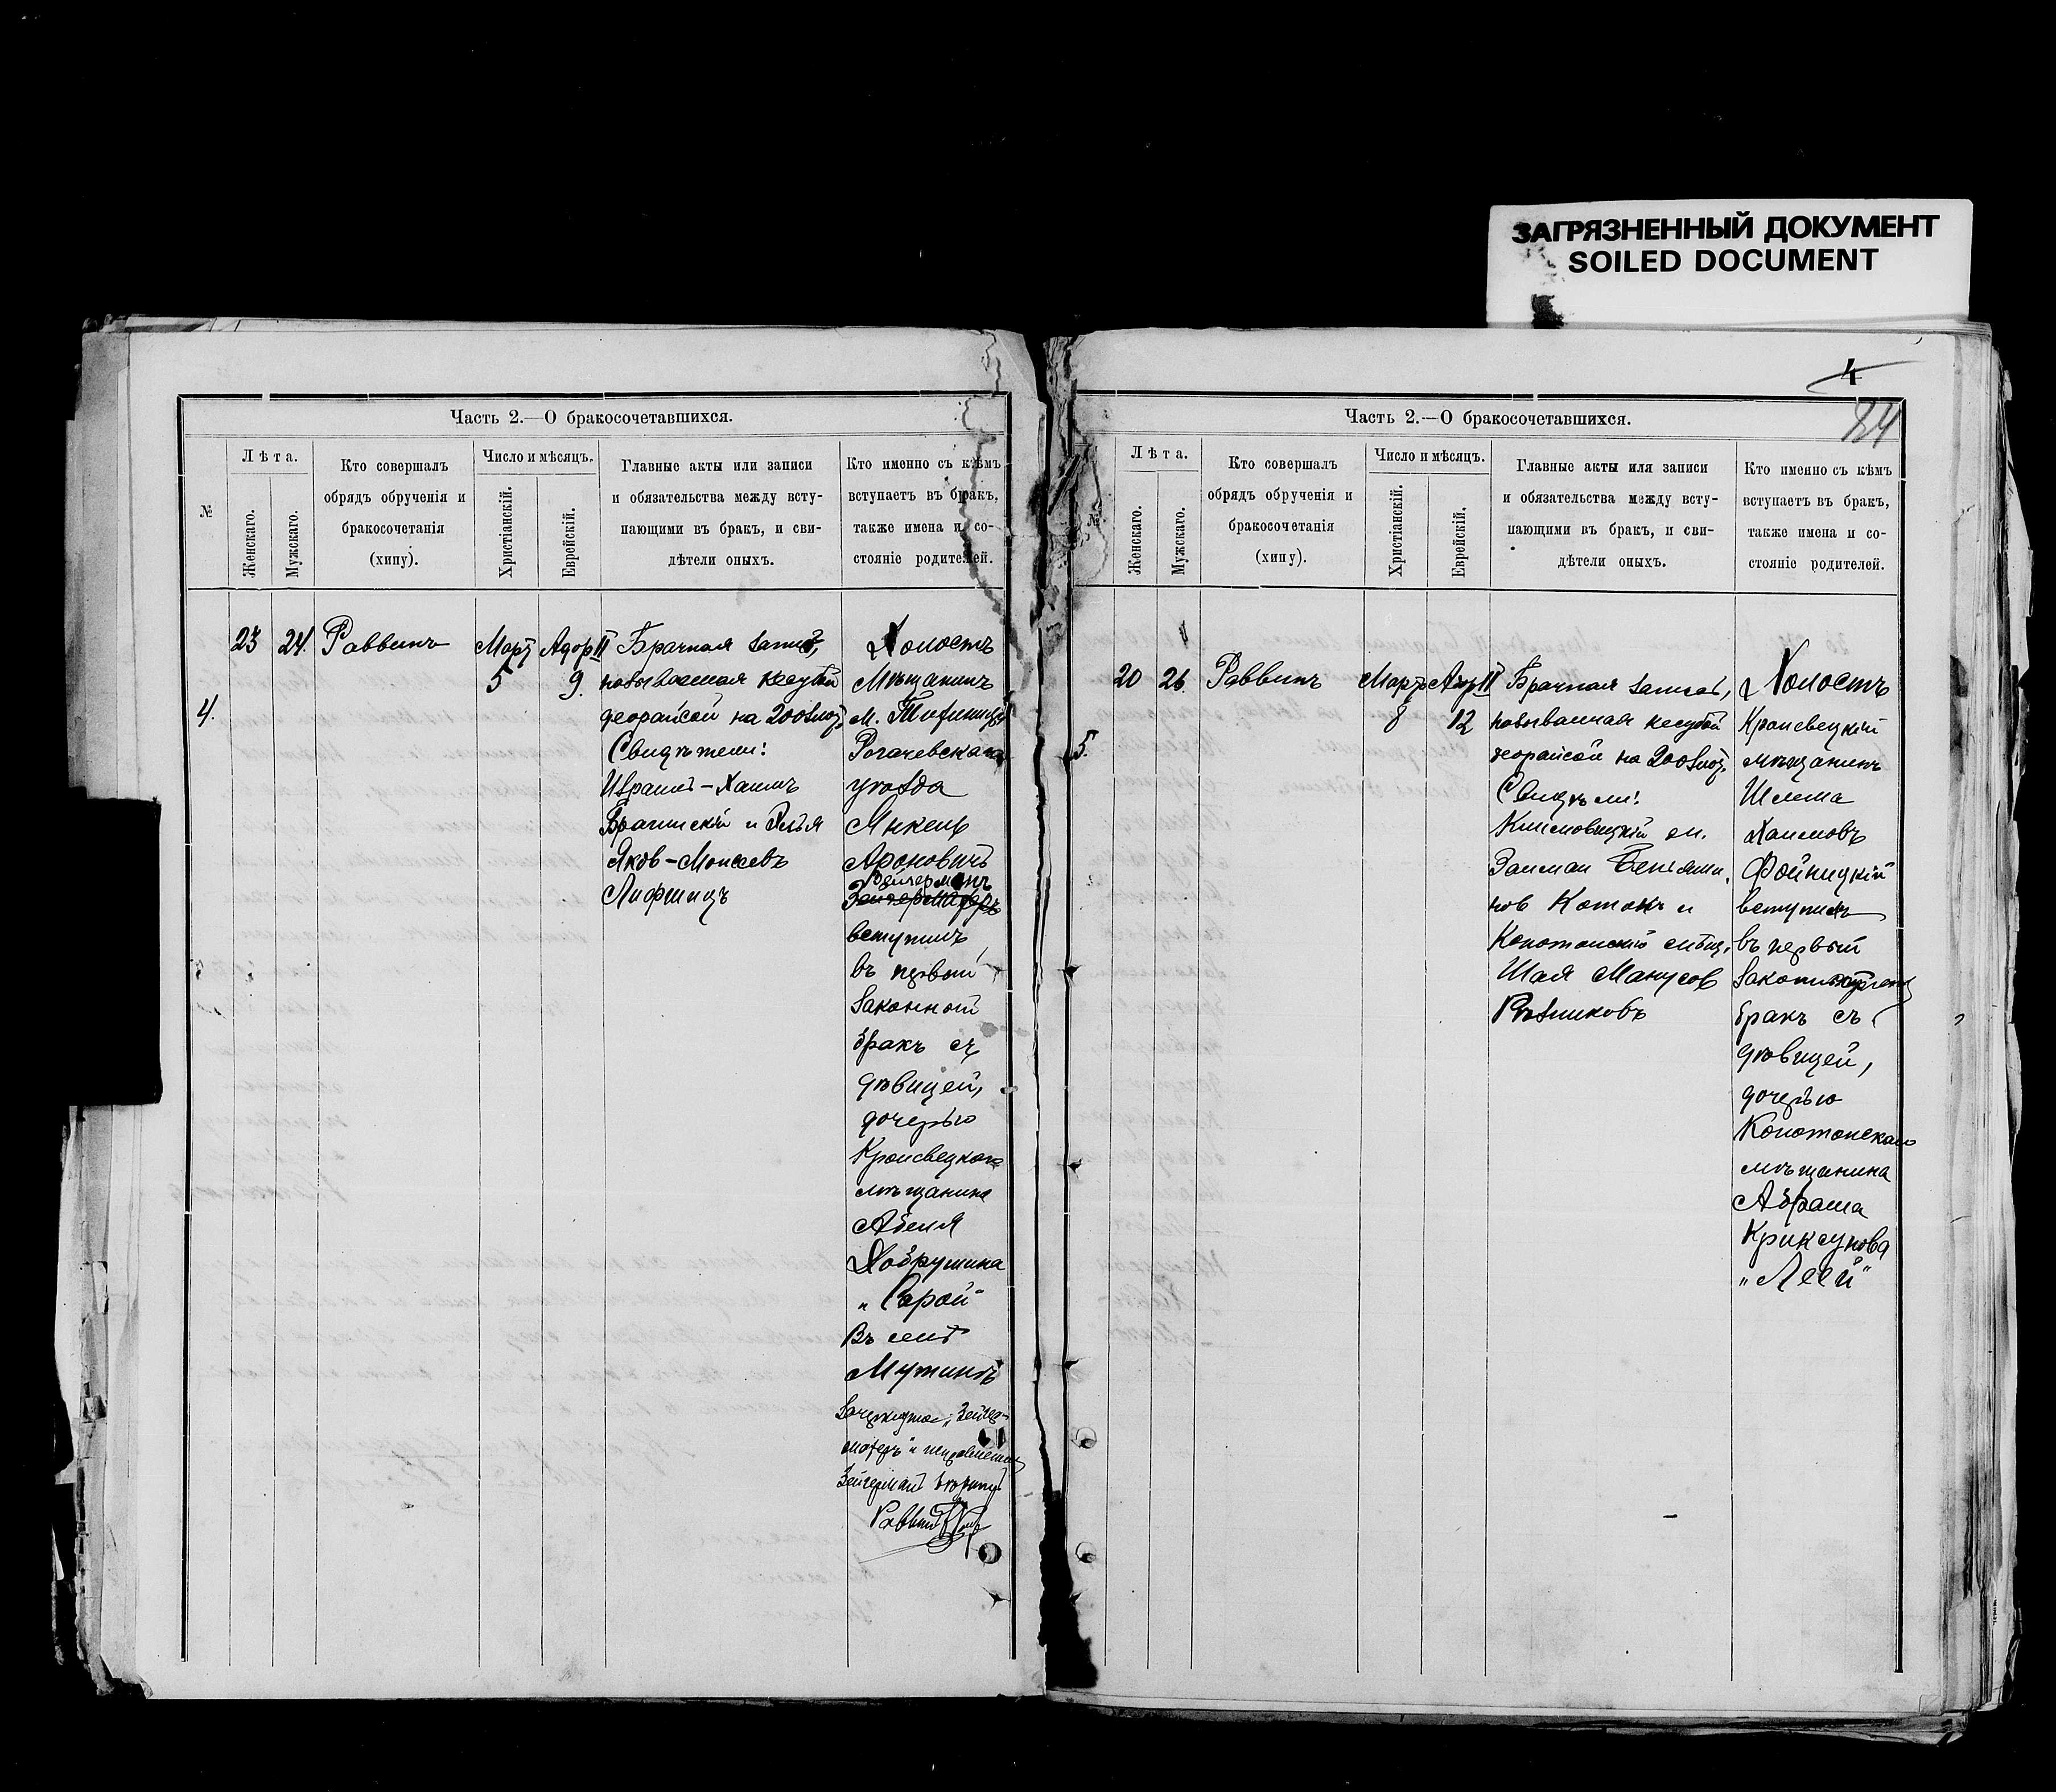 ЗАГРЯЗНЕННЫЙ ДОКУМЕНТ
SOILED DOCUMENT
Часть 2.—О бракосочетавшихся.
№
Лѣта.
Женскаго.
Мужскаго.
Кто совершалъ
обрядъ обрученія и
бракосочетанія
(хипу).
Число и мѣсяцъ.
Христіанскій.
Еврейскій.
Главные акты или записи
и обязательства между всту-
пающими въ бракъ, и сви-
дѣтели оныхъ.
Кто именно съ кѣмъ
вступаетъ въ бракъ,
также имена и со-
стояніе родителей.
4.
23
24.
Раввинъ
Мартъ
5
Адоръ II
9.
Брачная запись,
называемая кесубой
деорайсой на 200 злот.
Свидѣтели:
Израиль-Хаимъ
Брагинскій и
Яков-Моисеевъ
Лифшицъ
Холостъ
Мѣщанинъ
м.
Рогачевскаго
уѣзда
Янкель
Ароновичъ
Зейгерманъ
вступилъ
въ первый
законной
бракъ съ
дѣвицей,
дочерью
Кролевецкаго
мѣщанина
Абеля
Хобрушина
„Сарой"
Въ селѣ
Мутинѣ
Зачеркнутое „Зейгер-
Раввинъ
4
84
Часть 2.—О бракосочетавшихся.
№
Лѣта.
Женскаго.
Мужскаго.
Кто совершалъ
обрядъ обрученія и
бракосочетанія
(хипу).
Число и мѣсяцъ.
Христіанскій.
Еврейскій.
Главные акты или записи
и обязательства между всту-
пающими въ бракъ, и сви-
дѣтели оныхъ.
Кто именно съ кѣмъ
вступаетъ въ бракъ,
также имена и со-
стояніе родителей.
5.
20
26.
Раввинъ
Мартъ
8
Адоръ II
12
Брачная запись,
называемая кесубой
деорайсой на 200 злот.
Климовицкій м.
Залман Беньями-
нов Котокъ и
Конотопскій мѣщ.
Шая Манусов
Рѣзниковъ
Холостъ
Кролевецкій
мѣщанинъ
Шлема
Хаимовъ
Фойницкій
вступилъ
въ первый
бракъ съ
дѣвицей,
дочерью
Конотопскаго
мѣщанина
Абрама
Криксунова
„Леей"